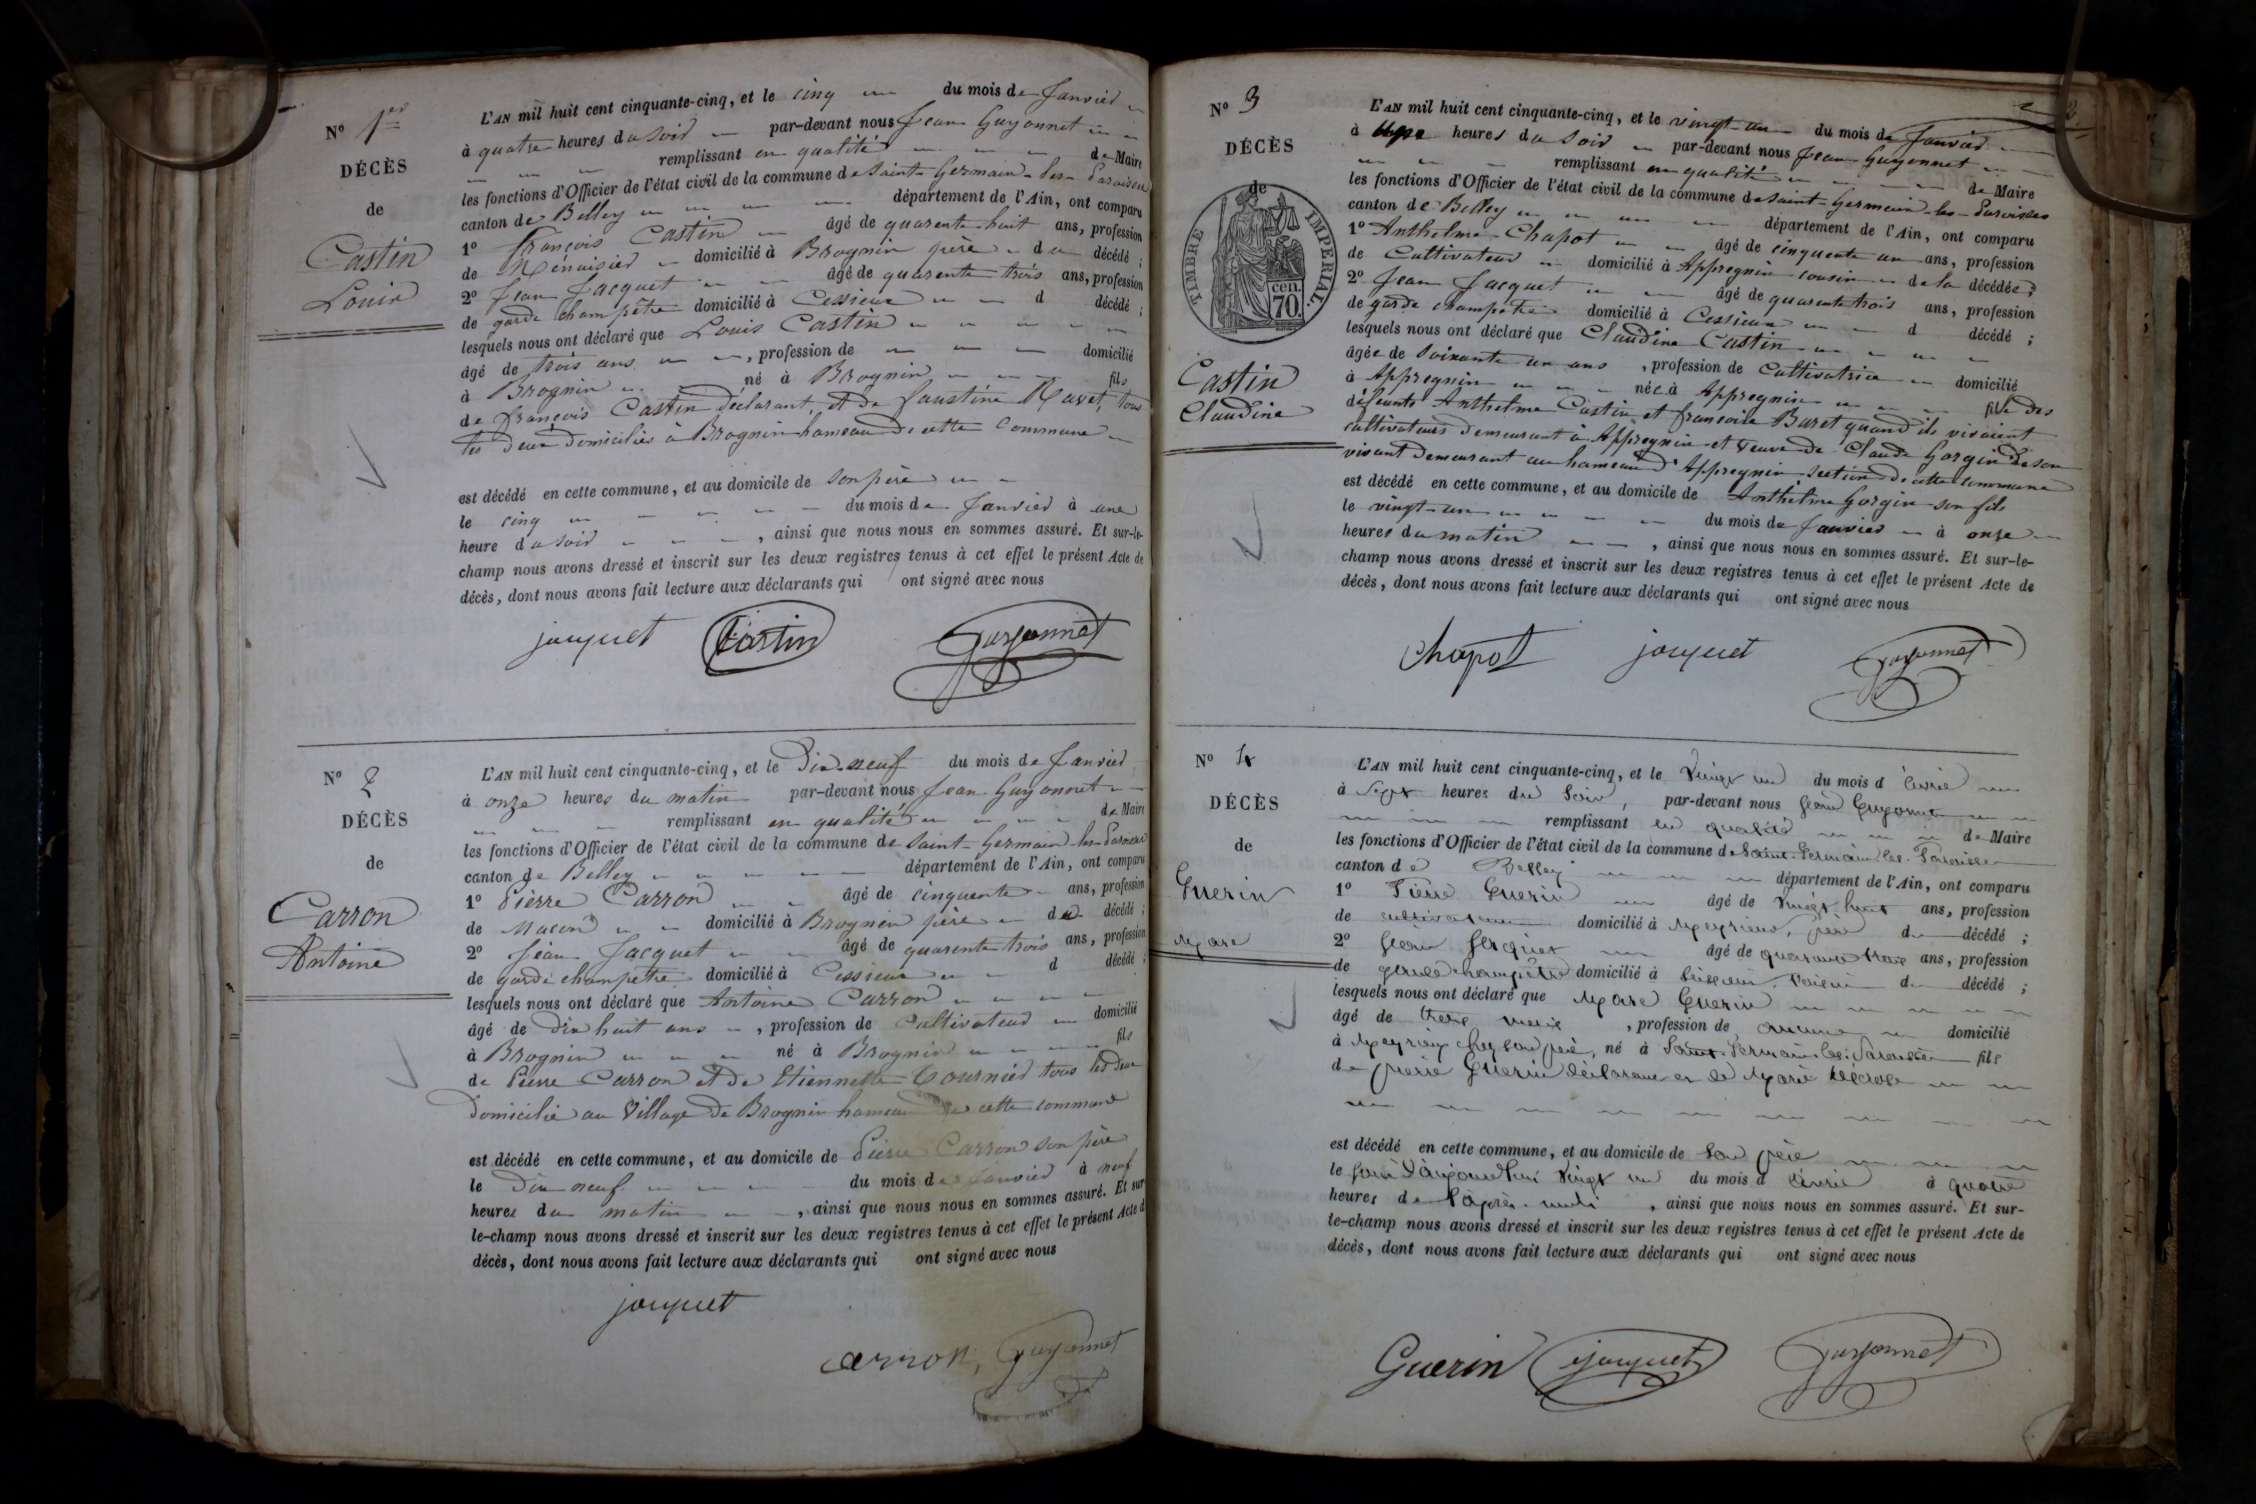 N° 1er
DÉCÈS
de
Castin
Louis
L'AN mil huit cent cinquante-cinq, et le cinq du mois de Janvier
à quatre heures du soir par-devant nous Jean Guyonnet
remplissant en qualité de Maire
les fonctions d'Officier de l'état civil de la commune de Saint-Germain-les-Paroisses
canton de Belley département de l'Ain, ont comparu
1° François Castin âgé de quarante-huit ans, profession
de Ménuisier domicilié à Brognin père du décédé ;
2° Jean Jacquet âgé de quarante trois ans, profession
de garde champêtre domicilié à Cessieux d décédé ;
lesquels nous ont déclaré que Louis Castin
âgé de trois ans , profession de domicilié
à Brognin né à Brognin fils
de françois Castin déclarant, et de faustine Ravet, tous
les deux domiciliés à Brognin hameau de cette Commune
est décédé en cette commune, et au domicile de son père
le cinq du mois de Janvier à une
heure du soir , ainsi que nous nous en sommes assuré. Et sur-le-
champ nous avons dressé et inscrit sur les deux registres tenus à cet effet le présent Acte de
décès, dont nous avons fait lecture aux déclarants qui ont signé avec nous
jacquet Castin Guyonnet
N° 2
DÉCÈS
de
Carron
Antoine
L'AN mil huit cent cinquante-cinq, et le Dix-neuf du mois de Janvier
à onze heures du matin par-devant nous Jean Guyonnet
remplissant en qualité de Maire
les fonctions d'Officier de l'état civil de la commune de Saint-Germain-les-Paroisses
canton de Belley département de l'Ain, ont comparu
1° Pierre Carron âgé de cinquante ans, profession
de Maçon domicilié à Brognin père du décédé ;
2° Jean Jacquet âgé de quarante trois ans, profession
de garde champêtre domicilié à Cessieux d décédé ;
lesquels nous ont déclaré que Antoine Carron
âgé de Dix huit ans , profession de Cultivateur domicilié
à Brognin né à Brognin fils
de Pierre Carron et de Etiennette Tournier tous les deux
Domicilié au Village de Brognin hameau de cette commune
est décédé en cette commune, et au domicile de Pierre Carron son père
le Dix neuf du mois de Janvier à neuf
heures du matin , ainsi que nous nous en sommes assuré. Et sur
le-champ nous avons dressé et inscrit sur les deux registres tenus à cet effet le présent Acte d
décès, dont nous avons fait lecture aux déclarants qui ont signé avec nous
jacquet
carron, Guyonnet
N° 3
DÉCÈS
de
TIMBRE IMPÉRIAL
70 cen.
Castin
Claudine
L'AN mil huit cent cinquante-cinq, et le vingt-un du mois de Janvier
à heures du soir par-devant nous Jean Guyonnet
remplissant en qualité de Maire
les fonctions d'Officier de l'état civil de la commune de Saint-Germain-les-Paroisses
canton de Belley département de l'Ain, ont comparu
1° Anthelme Chapot âgé de cinquante un ans, profession
de Cultivateur domicilié à Appregnin cousin de la décédée ;
2° Jean Jacquet âgé de quarante trois ans, profession
de garde champetre domicilié à Cessieux d décédé ;
lesquels nous ont déclaré que Claudine Castin
âgée de Soixante un ans , profession de Cultivatrice domicilié
à Appregnin née à Appregnin fille des
défeunts Anthelme Castin et françoise Buret quand ils vivaient
cultivateurs demeurant à Appregnin et veuve de Claude Gorgin de son
vivant demeurant au hameau d'Appregnin section de cette commune
est décédé en cette commune, et au domicile de Anthelme Gorgin son fils
le vingt-un du mois de Janvier à onze
heures du matin , ainsi que nous nous en sommes assuré. Et sur-le-
champ nous avons dressé et inscrit sur les deux registres tenus à cet effet le présent Acte de
décès, dont nous avons fait lecture aux déclarants qui ont signé avec nous
Chapot jacquet Guyonnet
N° 4
DÉCÈS
de
Guerin
Marc
L'AN mil huit cent cinquante-cinq, et le Vingt un du mois d'Avril
à Sept heures du Soir, par-devant nous Jean Guyonnet
remplissant en qualité de Maire
les fonctions d'Officier de l'état civil de la commune de Saint-Germain les Paroisses
canton de Belley département de l'Ain, ont comparu
1° Pierre Guerin âgé de Vingt huit ans, profession
de cultivateur domicilié à Meyrieux, père du décédé ;
2° Jean Jacquet âgé de quarante trois ans, profession
de garde champêtre domicilié à Voisin du décédé ;
lesquels nous ont déclaré que Marc Guerin
âgé de treize mois , profession de aucune domicilié
à Meyrieux chez son père, né à Saint-Germain les Paroisses fils
de pierre Guerin déclarant et de Marie
est décédé en cette commune, et au domicile de son père
le jour d'aujourd'hui Vingt un du mois d'Avril à quatre
heures de l'après-midi , ainsi que nous nous en sommes assuré. Et sur-
le-champ nous avons dressé et inscrit sur les deux registres tenus à cet effet le présent Acte de
décès, dont nous avons fait lecture aux déclarants qui ont signé avec nous
Guerin jacquet Guyonnet